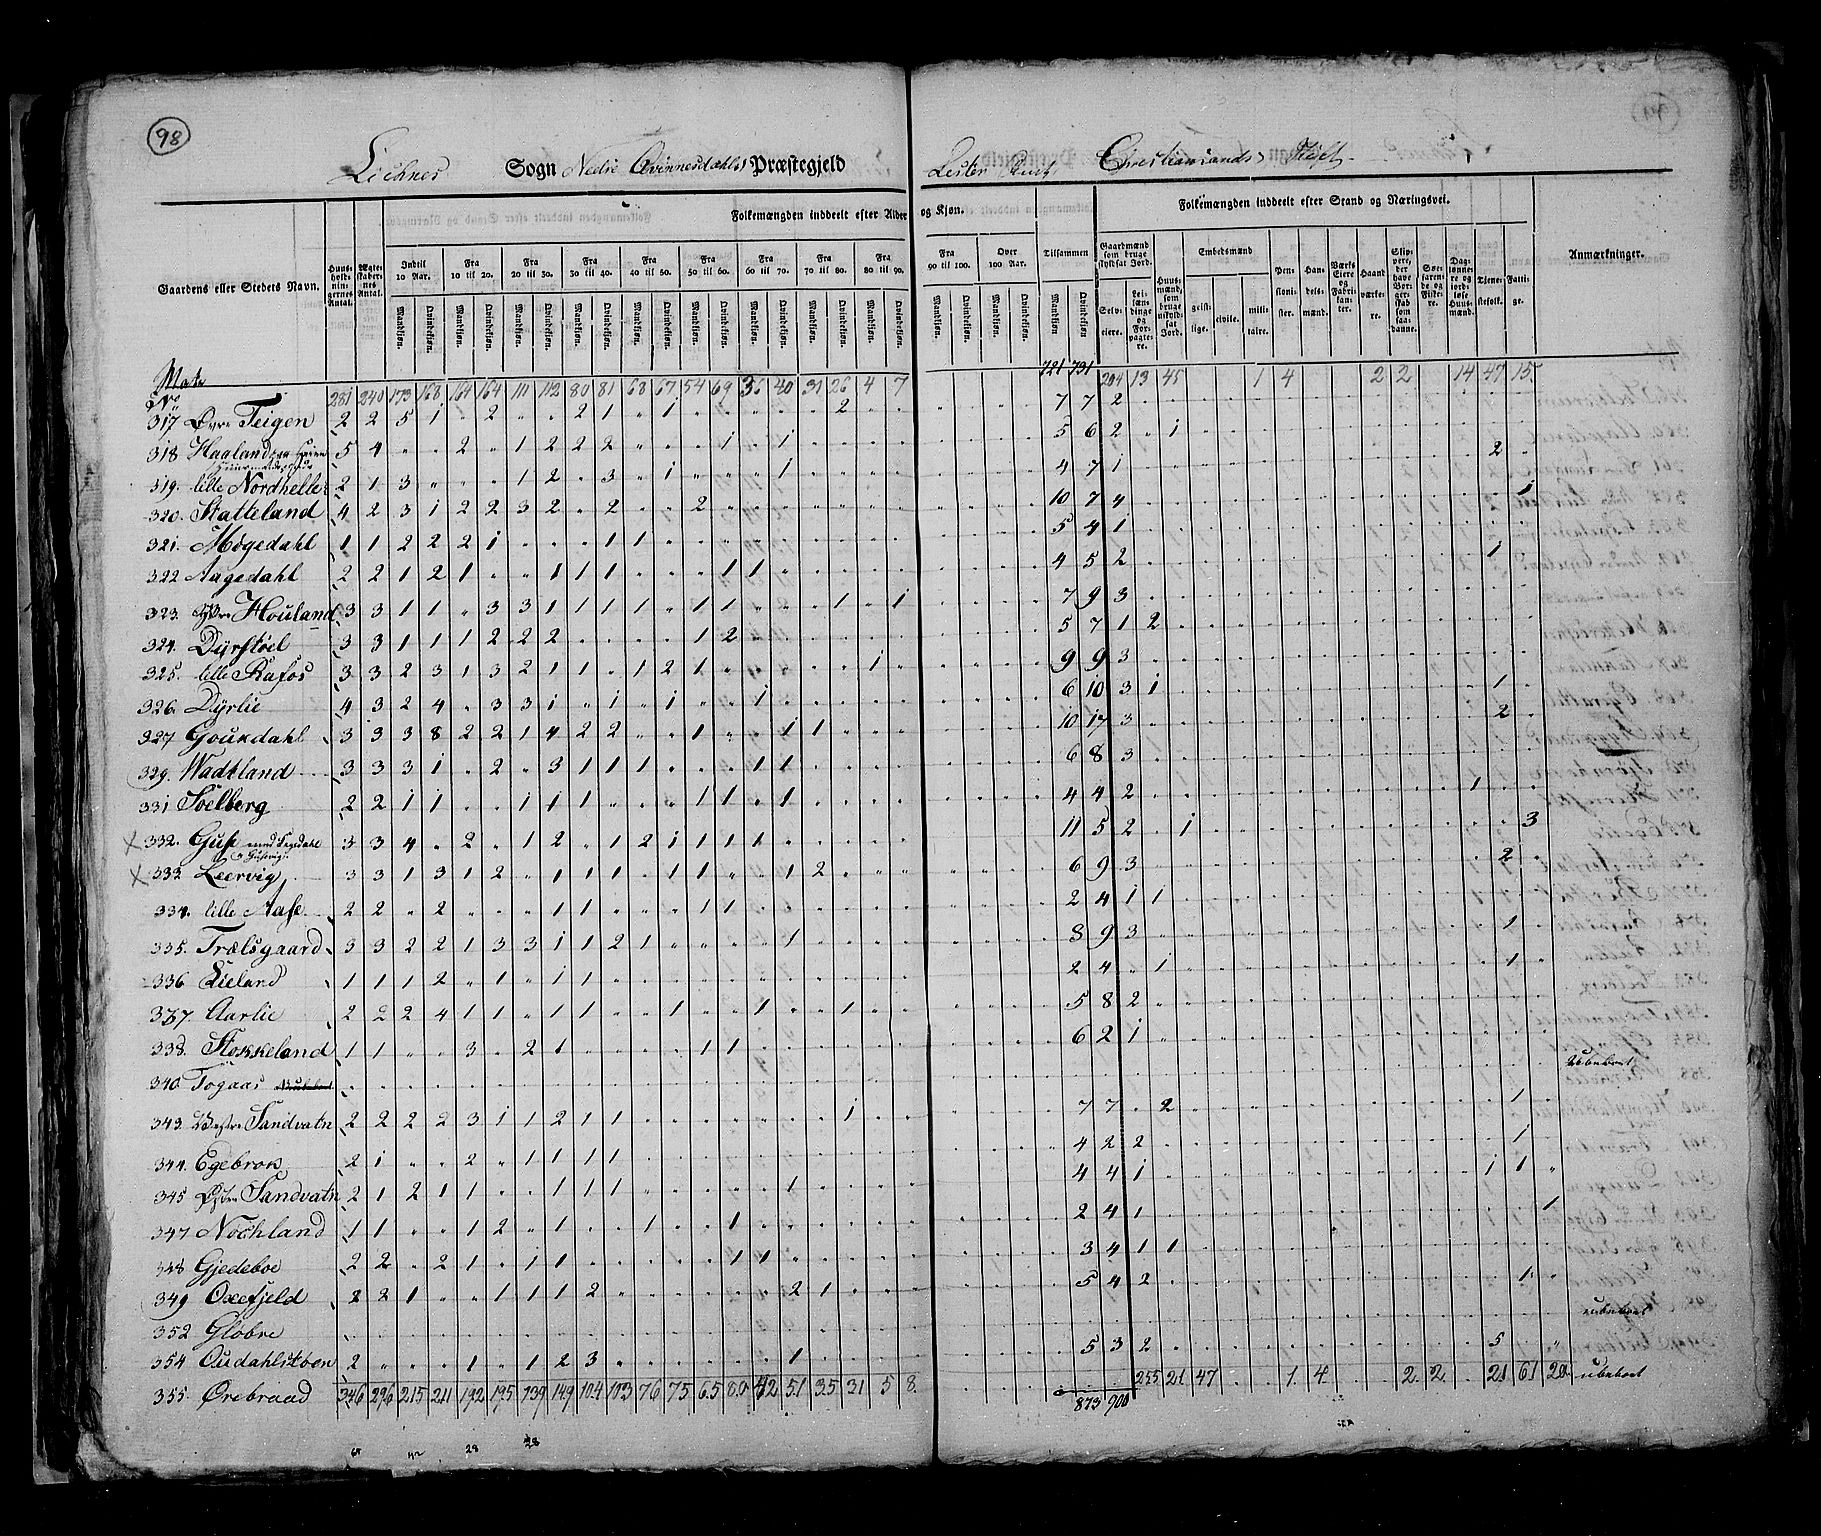 98
Liehnes Sogn Nedre Qvinnesdahls Præstegjeld Lister Christiansands Stift
Folkemængden inddeelt efter Alder og Kjøn. Folkemængden inddeelt efter Stand og Næringsvei.
Gaardens eller Stedets Navn. Huusholdningernes Antal. Ægteskabernes Antal. Indtil 10 Aar. Fra 10 til 20. Fra 20 til 30. Fra 30 til 40. Fra 40 til 50. Fra 50 til 60. Fra 60 til 70. Fra 70 til 80. Fra 80 til 90. Fra 90 til 100. Over 100 Aar. Tilsammen Gaardmænd som bruge skyldsat Jord. Huusmænd, som bruge uskyldsat Jord. Embedsmænd Pensionister. Handelsmænd. Værkseiere og Fabrikanter. Haandværkere. Skippere, der have Borgerskab som saadanne. Søefarende og Fiskere. Daglønnere og jordløse Huusmænd. Tjenestefolk. Fattige. Anmærkninger.
Mandkjøn. Qvindekjøn. Mandkjøn. Qvindekjøn. Mandkjøn. Qvindekjøn. Mandkjøn. Qvindekjøn. Mandkjøn. Qvindekjøn. Mandkjøn. Qvindekjøn. Mandkjøn. Qvindekjøn. Mandkjøn. Qvindekjøn. Mandkjøn. Qvindekjøn. Mandkjøn. Qvindekjøn. Mandkjøn. Qvindekjøn. Mandkjøn Qvindekjøn Selveiere. Leilændinge og Forpagtere. geistlige. civile. militaire.
281 240 173 168 164 164 111 112 80 81 68 67 54 69 36 40 31 26 4 7 721 731 204 13 45 1 4 2 2 14 47 15
317 Øvre Teigen 2 2 5 1 " 2 " " 2 1 " 1 " " " " " 2 " " 7 7 2
318 Haaland 5 4 " " 2 " 1 2 2 2 " " " 1 " 1 5 6 2 " 1 2
319. lille Nordhelle 2 1 3 " " " 1 2 " 3 " 1 " " " 1 4 7 1 1
320. Statteland 4 2 3 1 2 2 3 2 " 2 " " 2 10 7 4
321. Mögedahl 1 1 2 2 2 1 " " " 1 1 5 4 1 1
322 Aagedahl 2 2 1 2 1 " " 1 1 1 " " " 1 1 4 5 2
323. Houland 3 3 1 1 " 3 3 1 1 1 1 " 1 1 " " " 1 " 1 7 9 3
324. Dyrstöel 3 3 1 1 1 2 2 2 " " " " 1 2 5 7 1 2
325. lille Rafos 3 3 2 3 1 3 2 1 1 " 1 2 1 " " " " " 1 " 9 9 3
326. Dyrlie 4 3 2 4 " 3 3 1 " 1 " 1 " " 1 6 10 3 1 1
327 Goukdahl 3 3 3 8 2 2 1 4 2 2 " " 1 " " 1 1 10 17 3 2
329. Wadtland 3 3 3 1 " 2 " 3 1 1 1 " " " 1 1 6 8 3
331 Soelberg 2 2 1 1 " " 1 1 1 1 " " 1 1 " 1 4 4 2 1
332. Guse med 3 3 4 " 2 " 1 2 " 1 2 1 1 1 1 11 5 2 " 1 3
333 Leervig 3 3 1 3 1 2 " 1 1 1 " 1 1 " " 1 2 6 9 3 2
334. lille Aase 2 2 " 2 " " " 1 1 " " " 1 1 2 4 1 1
335. Trælsgaard 3 3 2 2 1 3 3 1 1 2 1 " " " " 1 8 9 3 1
336 Lieland 1 1 1 2 " 1 " 1 1 2 4 " 1 1
337. Aarlie 2 2 2 4 1 1 " 1 1 " " 1 " " 1 " " 1 5 8 2
338. Stokkeland 1 1 " " 3 " 2 1 " " " " 1 1 6 2 1
340 Togaas ubeboet
343. Vestre Sandvatn 2 2 2 2 3 1 1 2 1 1 " " " " " " " 1 7 7 " 2 1
344. Egebrok 2 1 " " 2 " 1 1 1 1 4 2 2 1
345 Østre Sandvatn 2 1 2 1 1 " " 1 1 1 " " " " " 1 4 4 1 1 1
347 Nochland 1 1 " " 1 2 " 1 " " 1 " " 1 2 4 1 1
348 Gjedeboe 2 2 " 2 1 " 1 1 " " " " " 1 1 3 4 1 1
349 Oxefjeld 2 2 1 " " 1 1 1 2 " " " " " " 2 1 5 4 2 1
352 Glöbre ubeboet
354 Oudahlstöen 2 " " " 1 " 1 2 3 " " " " " " 1 5 3 2 5
355. Ørebraad 346 296 215 211 192 195 139 149 104 103 76 75 65 80 42 51 35 31 5 8 873 900 255 21 47 1 4 2 2 21 61 20 ubeboet